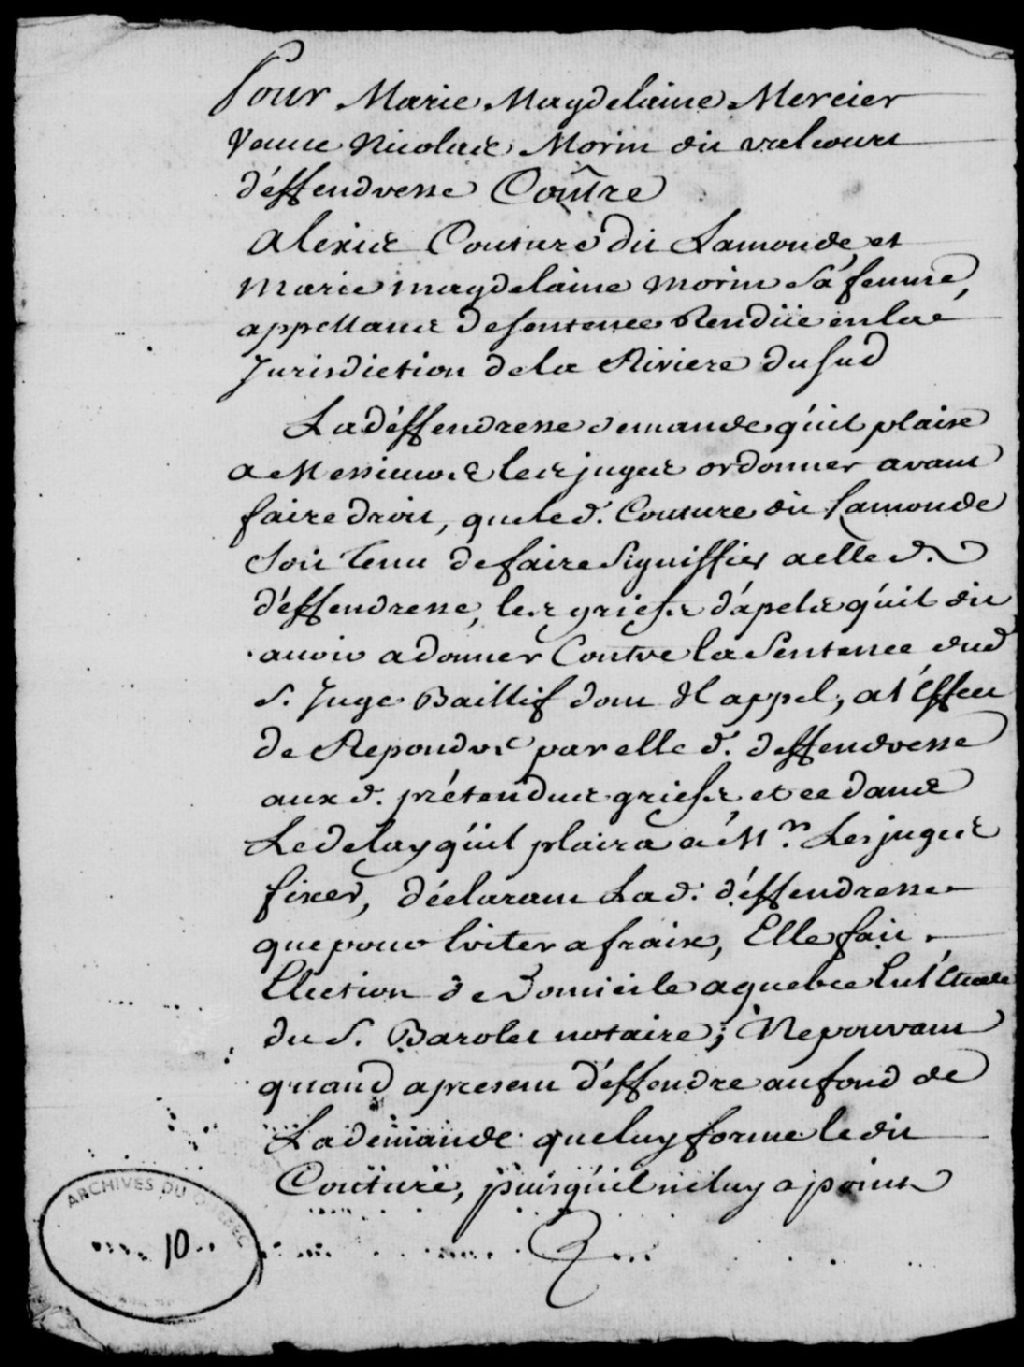 Pour Marie Magdelaine Mercier
Veuve Nicolas Morin dit valcourt
déffendresse Coñtre
Alexis Couture dit Lamonde, et
Marie magdelaine morin Sa femme,
appellans de sentence Rendüe en la
Jurisdiction de la Riviere du sud
La déffendresse demande qu'il plaise
a Messieurs les juges ordonner avant
faire droit, que le d. Couture dit Lamonde
Soit tenu de faire Signiffier a elle d.
déffendresse, les griefs d'apels qu'il dit
avoir a donner Contre la Sentence dud
S. Juge Baillif dont Il appel, a l'Effet
de Repondre par elle d. deffendresse
aux d. prétendus griefs, et ce dans
Le delay qu'il plaira a M.rs Les juges
fixer, déclarant Lad. déffendresse
que pour Eviter a frais, Elle fait
Election de Domicile a quebec En l'Etude
du S. Barolet notaire; Ne pouvant
quand a present déffendre au fond de
La demande que luy forme le dit
Couture, puisqu'il ne luy a point
ARCHIVES DU QUEBEC
10